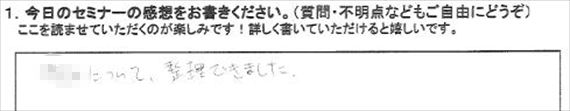 1. 今日のセミナーの感想をお書きください。（質問・不明点などもご自由にどうぞ）
ここを読ませていただくのが楽しみです！詳しく書いていただけると嬉しいです。
について、整理できました。